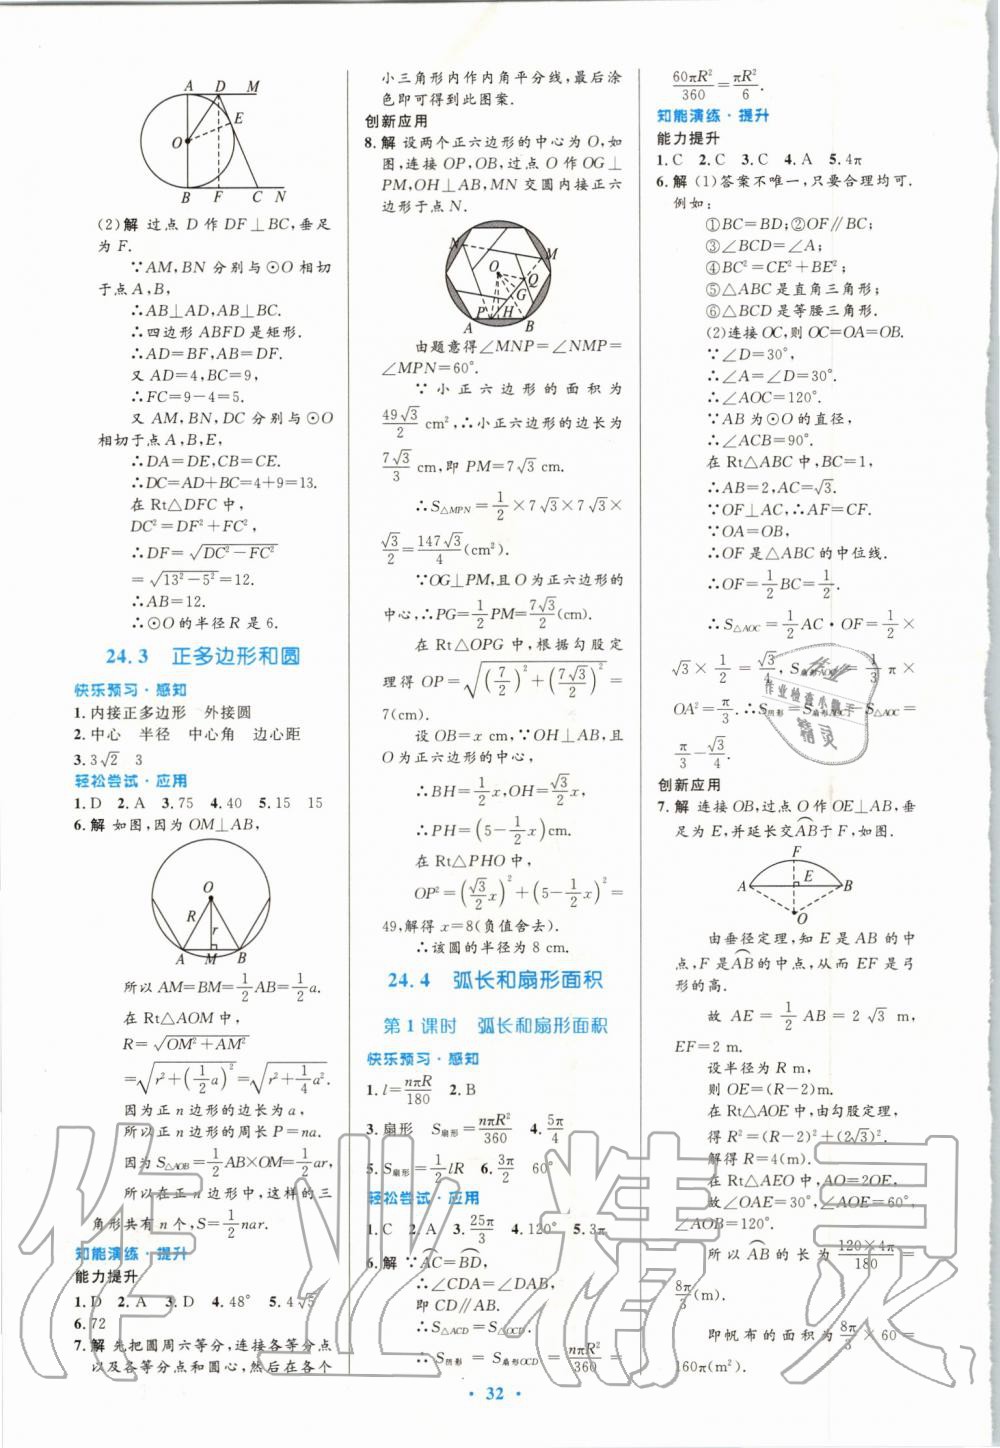 A D M
E
O
B F C N
(2)解 过点 D 作 DF⊥BC,垂足
为 F.
∵AM,BN 分别与⊙O 相切
于点 A,B,
∴AB⊥AD,AB⊥BC.
∴四边形 ABFD 是矩形.
∴AD=BF,AB=DF.
又 AD=4,BC=9,
∴FC=9-4=5.
又 AM,BN,DC 分别与⊙O
相切于点 A,B,E,
∴DA=DE,CB=CE.
∴DC=AD+BC=4+9=13.
在 Rt△DFC 中,
DC²=DF²+FC²,
∴DF=√(DC²-FC²)
=√(13²-5²)=12.
∴AB=12.
∴⊙O 的半径 R 是 6.
24.3 正多边形和圆
快乐预习·感知
1.内接正多边形 外接圆
2.中心 半径 中心角 边心距
3.3√2 3
轻松尝试·应用
1.D 2.A 3.75 4.40 5.15 15
6.解 如图,因为 OM⊥AB,
O
R r
A M B
所以 AM=BM=1/2AB=1/2a.
在 Rt△AOM 中,
R=√(OM²+AM²)
=√(r²+(1/2a)²)=√(r²+1/4a²).
因为正 n 边形的边长为 a,
所以正 n 边形的周长 P=na.
因为 S△AOB=1/2AB×OM=1/2ar,
所以在正 n 边形中,这样的三
角形共有 n 个,S=1/2nar.
知能演练·提升
能力提升
1.D 2.A 3.D 4.48° 5.4√5
6.72
7.解 先把圆周六等分,连接各等分点
以及各等分点和圆心,然后在各个
小三角形内作内角平分线,最后涂
色即可得到此图案.
创新应用
8.解 设两个正六边形的中心为 O,如
图,连接 OP,OB,过点 O 作 OG⊥
PM,OH⊥AB,MN 交圆内接正六
边形于点 N.
N M
O Q
G
P H
A B
由题意得∠MNP=∠NMP=
∠MPN=60°.
∵小正六边形的面积为
49√3/2 cm²,∴小正六边形的边长为
7√3/3 cm,即 PM=7√3 cm.
∴S△MPN=1/2×7√3×7√3×
√3/2=147√3/4(cm²).
∵OG⊥PM,且 O 为正六边形的
中心,∴PG=1/2PM=7√3/2(cm).
在 Rt△OPG 中,根据勾股定
理得 OP=√((7/2)²+(7√3/2)²)=
7(cm).
设 OB=x cm,∵OH⊥AB,且
O 为正六边形的中心,
∴BH=1/2x,OH=√3/2x,
∴PH=(5-1/2x)cm.
在 Rt△PHO 中,
OP²=(√3/2x)²+(5-1/2x)²=
49,解得 x=8(负值舍去).
∴该圆的半径为 8 cm.
24.4 弧长和扇形面积
第1课时 弧长和扇形面积
快乐预习·感知
1.l=nπR/180 2.B
3.扇形 S扇形=nπR²/360 4.5π/4
5.S扇形=1/2lR 6.3π/2 60°
轻松尝试·应用
1.C 2.A 3.25π/3 4.120° 5.3π
6.解 ∵AC=BD,
∴∠CDA=∠DAB,
即 CD∥AB.
∴S△ACD=S△OCD.
∴S阴影=S扇形OCD=nπR²/360=
60πR²/360=πR²/6.
知能演练·提升
能力提升
1.C 2.C 3.C 4.A 5.4π
6.解 (1)答案不唯一,只要合理均可.
例如:
①BC=BD;②OF∥BC;
③∠BCD=∠A;
④BC²=CE²+BE²;
⑤△ABC 是直角三角形;
⑥△BCD 是等腰三角形.
(2)连接 OC,则 OC=OA=OB.
∵∠D=30°,
∴∠A=∠D=30°.
∴∠AOC=120°.
∵AB 为⊙O 的直径,
∴∠ACB=90°.
在 Rt△ABC 中,BC=1,
∴AB=2,AC=√3.
∵OF⊥AC,∴AF=CF.
∵OA=OB,
∴OF 是△ABC 的中位线.
∴OF=1/2BC=1/2.
∴S△AOC=1/2AC·OF=1/2×
√3×1/2=√3/4,S扇形AOC=1/3π×
OA²=π/3.∴S阴影=S扇形AOC-S△AOC=
π/3-√3/4.
创新应用
7.解 连接 OB,过点 O 作 OE⊥AB,垂
足为 E,并延长交AB于 F,如图.
F
A E B
O
由垂径定理,知 E 是 AB 的中
点,F 是AB的中点,从而 EF 是弓
形的高.
故 AE=1/2AB=2√3 m,
EF=2 m.
设半径为 R m,
则 OE=(R-2)m.
在 Rt△AOE 中,由勾股定理,
得 R²=(R-2)²+(2√3)².
解得 R=4(m).
在 Rt△AEO 中,AO=2OE.
故∠OAE=30°,∠AOE=60°,
∠AOB=120°.
所以 AB 的长为 120×4π/180=
8π/3(m).
即帆布的面积为 8π/3×60=
160π(m²).
·32·
作业检查小帮手
精灵
作业精灵